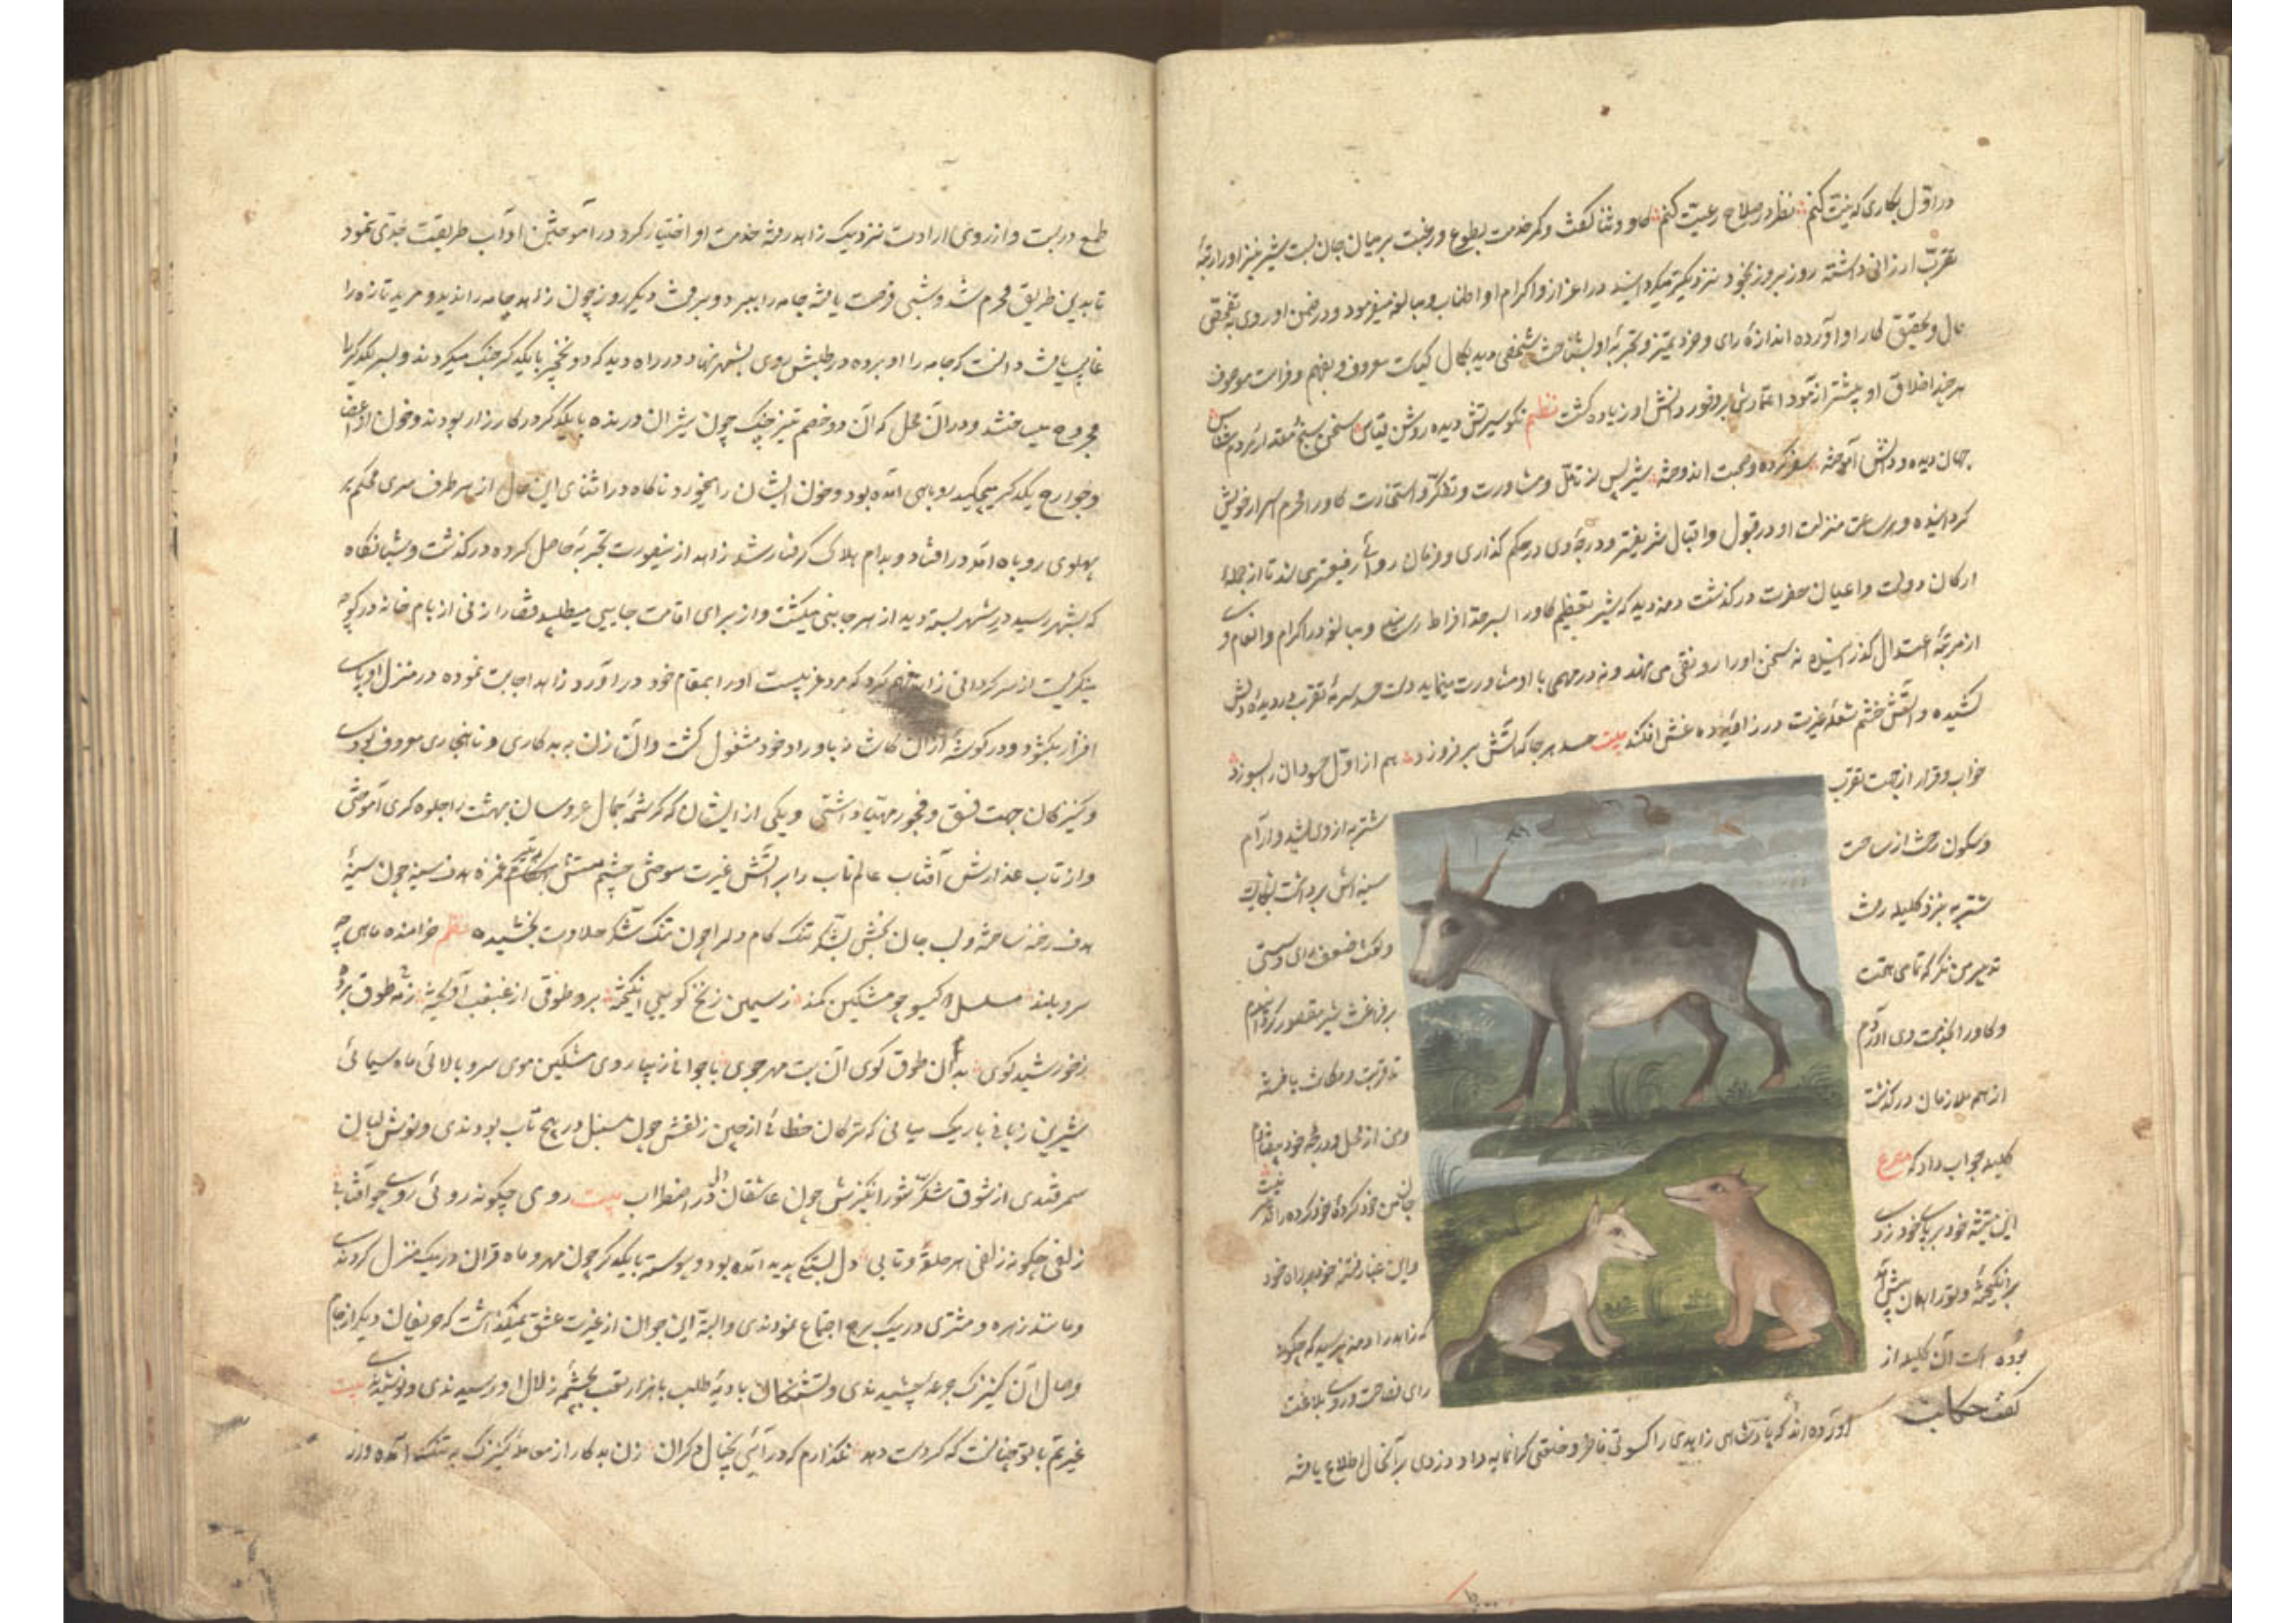 در اول بکاری که نیت کنم نظر در صلاح رعیت کنم گاو دعا و ثنا گفت و کمر خدمت بطوع و رغبت بر میان جان بست شیر نیز او را رتبهٔ
تقرب ارزانی داشته روز بروز بخود نزدیکتر میگردانید در اعزاز و اکرام او اطناب و مبالغه میفرمود و در ضمن او روی به تفحص
حال و تحقیق کار او آورده اندازهٔ رای و خرد و تمیز و تجربهٔ او بشناخت شخصی دید بکمال کیاست معروف و بفهم و فراست موصوف
هر چند اخلاق او بیشتر آزمود اعتمادش بر وفور دانش او زیاده گشت نظم نکو سیرتش دید و روشن قیاس سخن سنج و مقدار مردم شناس
جهان دیده و دانش آموخته سفر کرده و صحبت اندوخته شیر پس از تامل و مشاورت و تفکر و استخارت گاو را محرم اسرار خویش
گردانیده و هر ساعت منزلت او در قبول و اقبال شریفتر و درجهٔ وی در حکم گذاری و فرمان روائی رفیعتر می شد تا از جملهٔ
ارکان دولت و اعیان حضرت در گذشت دمنه دید که شیر تعظیم گاو را بسر حد افراط رسانید و مبالغه در اکرام و انعام وی
از مرتبهٔ اعتدال گذرانیده نه سخن او را رونقی می نهد و نه در مهمی با او مشاورت مینماید دست حسد سرمهٔ تقرب در دیدهٔ دلش
کشیده و آتش خشم شعلهٔ غیرت در زاویهٔ دماغش افکند بیت حسد هر جا که آتش بر فروزد هم از اول حسودان را بسوزد
خواب و قرار از جهت تقرب
شتربه از وی بشد و آرام
و سکون رخت از ساحت
سینه اش برداشت بشکایت
شتربه نزد کلیله رفت
و گفت ضعف رای و سستی
تدبیر من نگر که تمامی همت
بر فراغت شیر مقصور گردانیدم
و گاو را بخدمت وی آوردم
تا قربت و مکانت یافته
از همه ملازمان در گذشت
و من از محل و درجهٔ خود بیفتادم
کلیله جواب داد که مصرع
جان من خود کردهٔ خود کرده را تدبیر نیست
این تیشه خود بر پای خود زدی
و این غبار فتنه خود در راه خود
بر انگیختهٔ و ترا همان پیش آمد
که زاهد را دمنه پرسید که چگونه
بوده است آن کلیله از
رای فصاحت و روی بلاغت
گفت حکایت آورده اند که پادشاهی زاهدی را کسوتی فاخر و خلعتی گرانمایه داد دزدی بر آنحال اطلاع یافته
طمع در بست و از روی ارادت نزدیک زاهد رفته خدمت او اختیار کرد در آموختن آداب طریقت جدی نمود
تا بدین طریق محرم شد و شبی فرصت یافته جامه را ببرد و برفت دیگر روز چون زاهد جامه را ندید و مرید تازه را
غایب یافت دانست که جامه را او برده در طلبش روی بشهر نهاد و در راه دید که دو نخچیر با یکدیگر جنگ میکردند و بسر یکدیگر را
مجروح میساختند و در آن محل که آن دو خصم تیز چنگ چون شیران درنده با یکدیگر در کارزار بودند و خون از اعضا
و جوارح یکدیگر میچکید روباهی آمده بود و خون ایشان را میخورد ناگاه در اثنای این حال از هر طرف سری محکم بر
پهلوی روباه آمد در افتاد و بدام هلاک گرفتار شد زاهد از ینصورت تجربهٔ حاصل کرده در گذشت و شبانگاه
که بشهر رسید در شهر بسته دید از هر جانبی میگشت و از برای اقامت جایی میطلبید قضا را زنی از بام خانه در کوچه
مینگریست از سرگردانی زاهد فهم کرد که مرد غریبست او را بمقام خود در آورد زاهد اجابت نموده در منزل او پای
افزار بگشود و در گوشهٔ از آن کاشانه باوراد خود مشغول گشت و آن زن به بدکاری و ناهنجاری معروف بودی
و کنیزکان جهت فسق و فجور مهیا داشتی و یکی از ایشان که کرشمهٔ جمال عروسان بهشت را جلوه گری آموختی
و از تاب عذارش آفتاب عالم تاب را بر آتش غیرت سوختی چشم مستش بتیر غمزه هدف سینه چون سینهٔ
هدف رخنه ساخته و لب جان بخش بشکر تنک کام دلرا چون تنک شکر حلاوت بخشیده نظم خرامنده ماهی چه
سرو بلند مسلسل دو گیسو چو مشکین کمند ز سیمین زنخ گویی انگیخته برو طوقی از غبغب آویخته زنه طوق برده
ز خورشید گوی بد آن طوق گوی آن بت مهر جوی با جوانان زیبا روی مشکین موی سرو بالائی ماه سیمائی
شیرین زبانی باریک میانی که ترکان خطائی از چین زلفش چون سنبل در پیچ تاب بودندی و نوش لبان
سمرقندی از شوق شکر شور انگیزش چون عاشقان دل در اضطراب بیت روی چگونه روئی روی چو آفتابی
زلفی چگونه زلفی هر حلقه و تابی دل بستگی پدید آمده بود و پیوسته با یکدیگر چون مهر و ماه قران در یک منزل کردندی
و مانند زهره و مشتری در یک برج اجتماع نمودندی و البته این جوان از غیرت عشق نمیگذاشت که حریفان دیگر از جام
وصال آن کنیزک جرعه چشیدندی و تشنگان بادیهٔ طلب با هزار تعب بچشمهٔ زلال او رسیدندی و نوشیدندی بیت
غیرتم با تو چنانست که گر دست دهد نگذارم که در آئی بخیال دگران زن بدکار از معاملهٔ کنیزک به تنک آمده و در